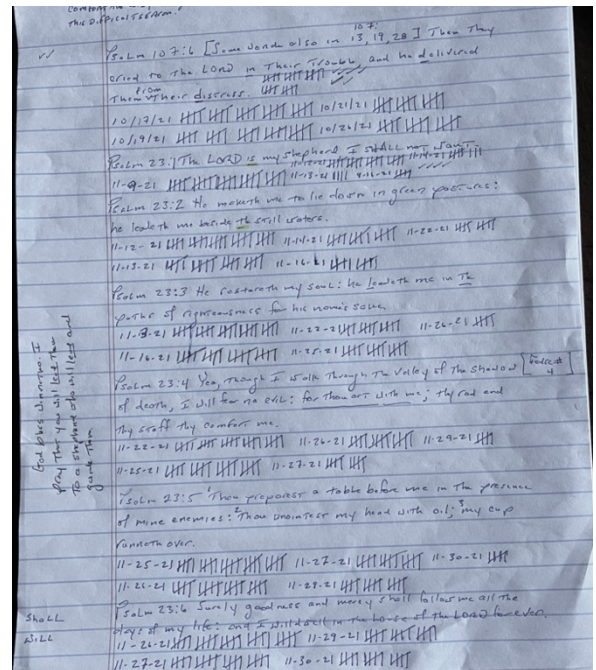 this Difficult
107:
Psalm 107:6 [Some words also in 13, 19, 28] Then They
cried to the LORD in Their Trouble, and he delivered
from
Them Their distress.
10/17/21 10/21/21
10/19/21 10/26/21
Psalm 23:1 The LORD is my shepherd I SHALL not want
11-9-21 11-13-21
Psalm 23:2 He maketh me to lie down in green pastures:
he leadeth me beside th still waters.
11-12-21 11-14-21 11-22-21
11-13-21 11-16-21
Psalm 23:3 He restoreth my soul: he leadeth me in Th
paths of righteousness for his name's sake
11-22-21 11-26-21
11-16-21 11-25-21
Psalm 23:4 Yea, Though I walk Through The Valley of The Shadow
4
of death, I will fear no evil: for thou art with me; thy rod and
thy staff thy comfort me.
11-22-21 11-26-21 11-29-21
11-25-21 11-27-21
Psalm 23:5 1 Thou preparest a table before me in the presence
of mine enemies: 2 Thou anointest my head with oil; 3 my cup
runneth over.
11-25-21 11-27-21 11-30-21
11-26-21 11-29-21
Psalm 23:6 Surely goodness and mercy shall follow me all the
days of my life: and I will dwell in the house of the LORD forever.
11-26-21 11-29-21
11-27-21 11-30-21
SHALL
WILL
God bless I
pray That you will lead Them
To a shepherd who will lead and
guide Them